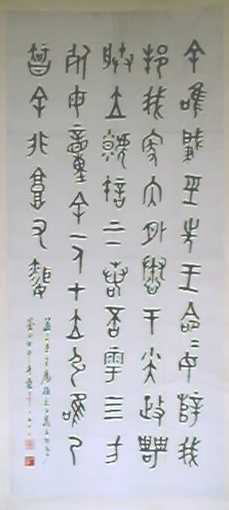 余唯肇巠先王命女辥我
邦我家内外惷于小大政甹
朕立虩許上下若否雩四方
死毋童余一人才立弘唯乃
智余非庸又聞